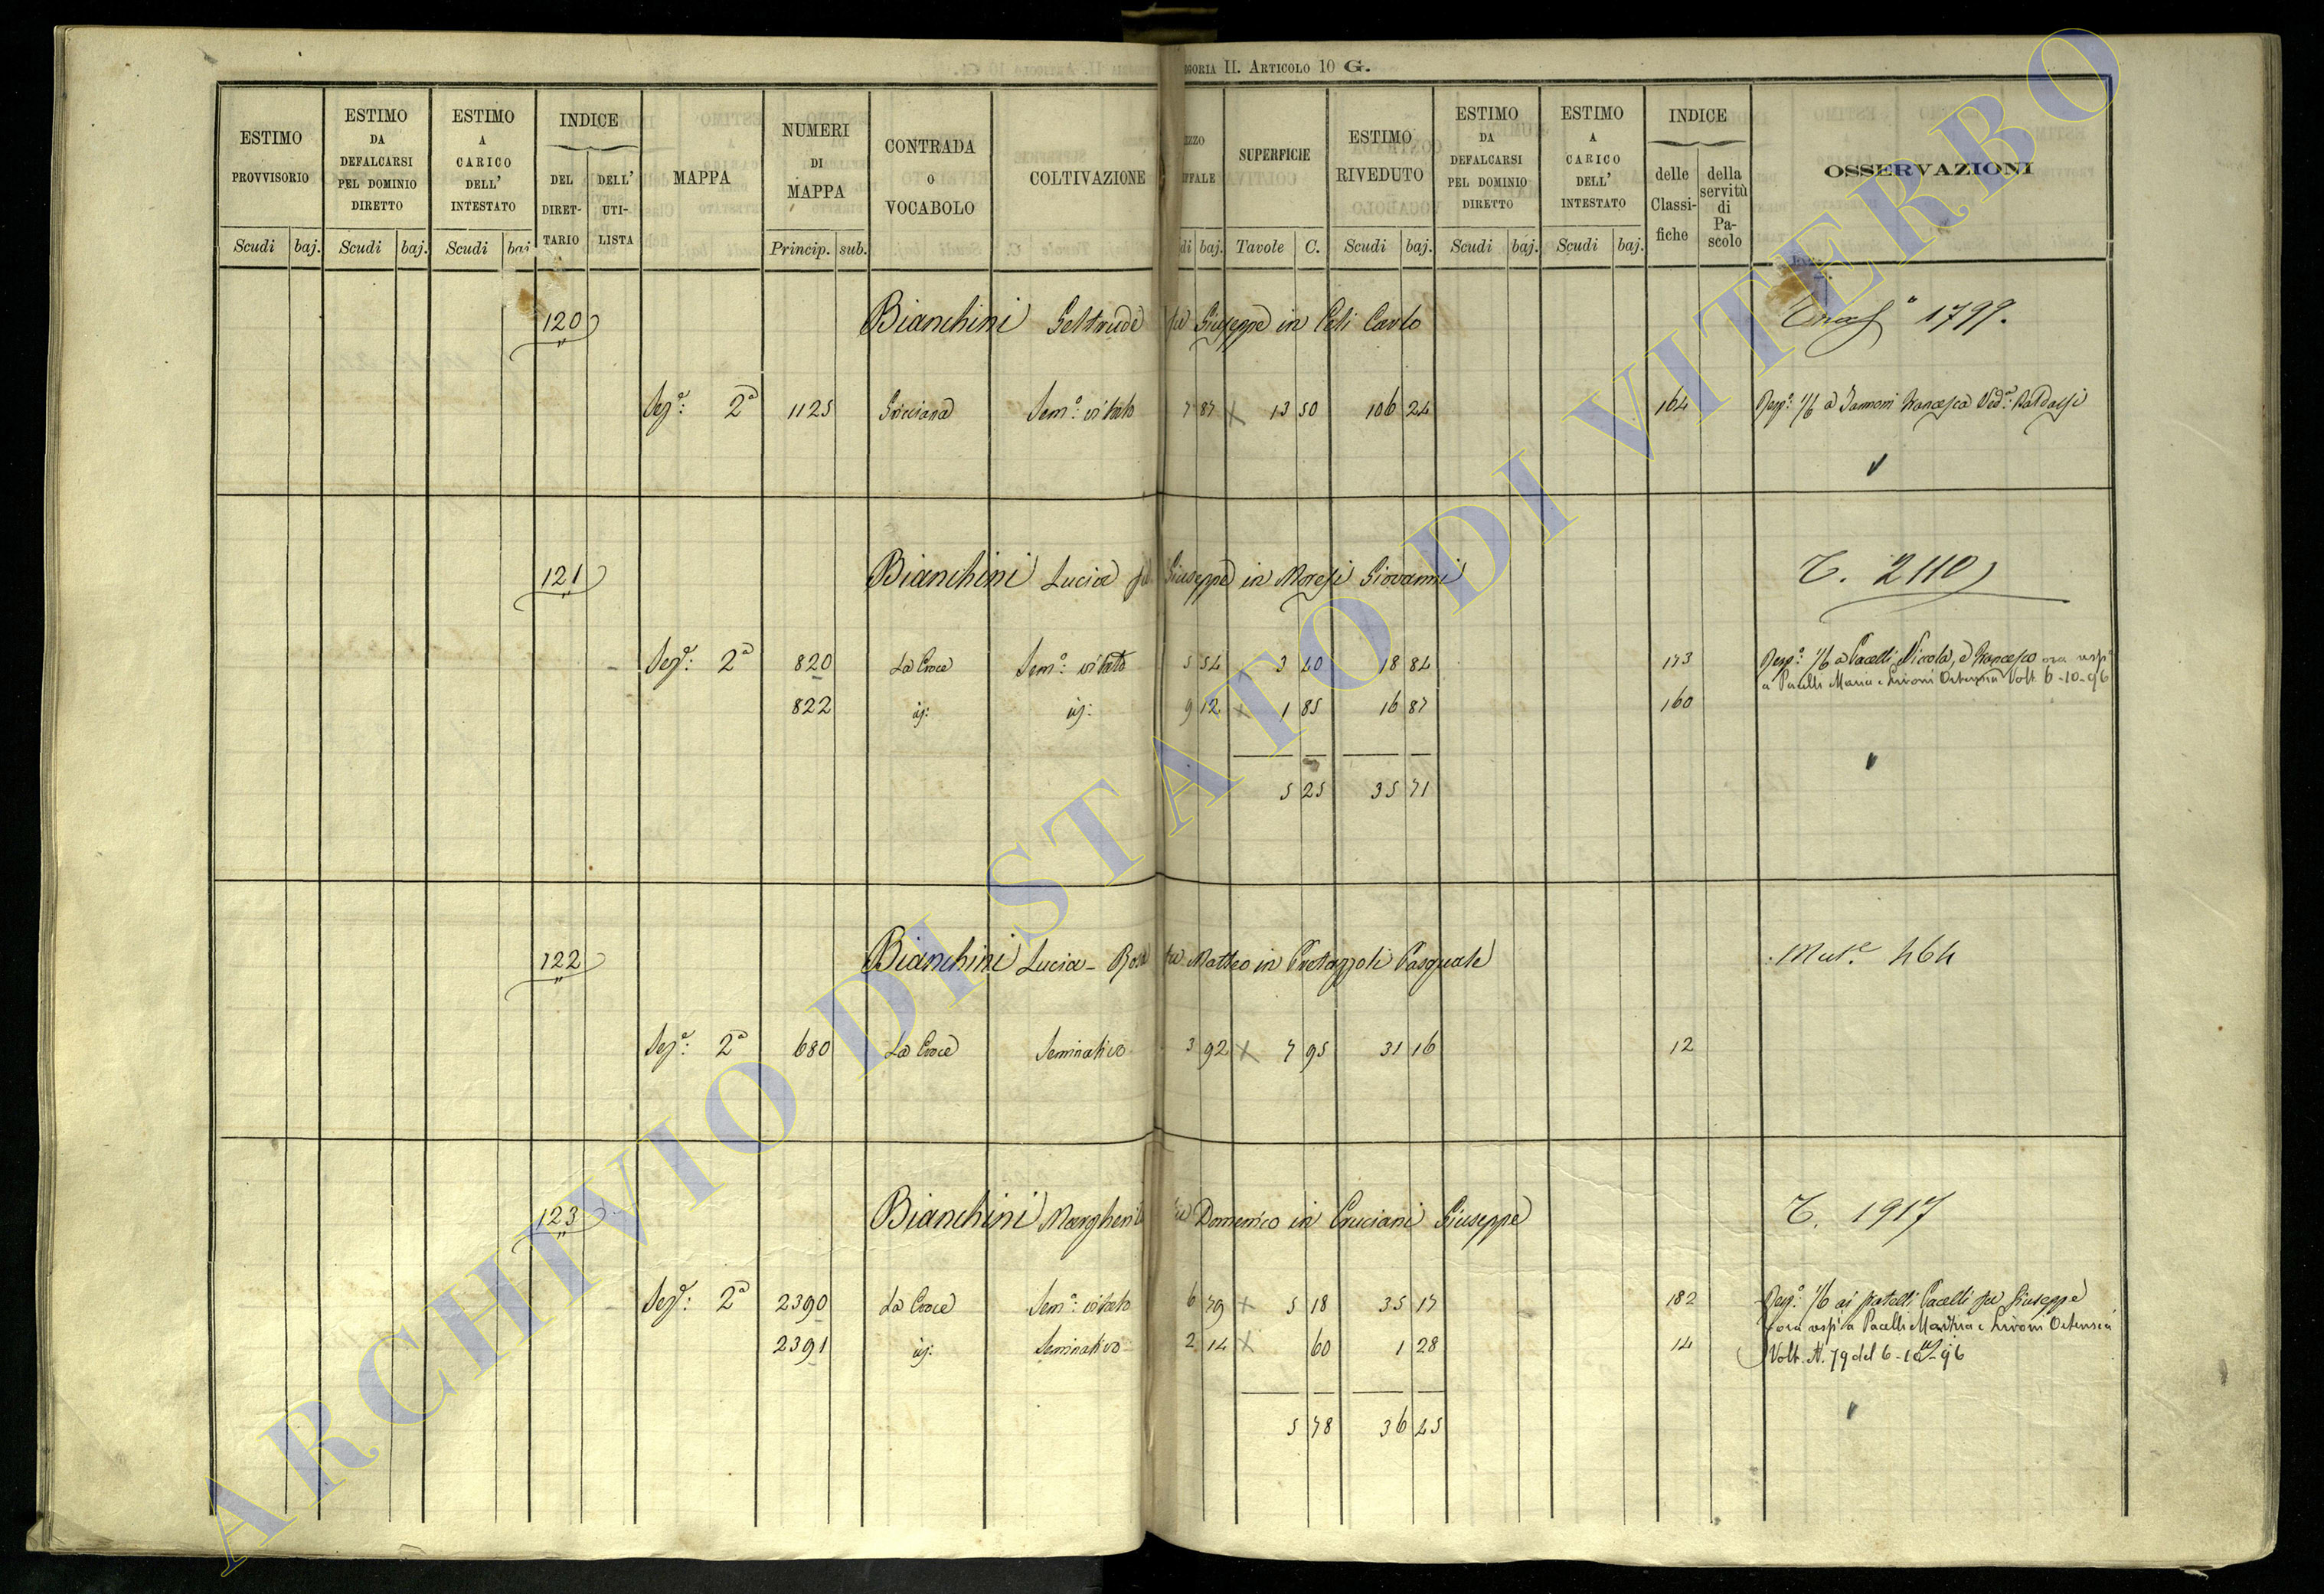 GORIA II. ARTICOLO 10 G.
ESTIMO PROVVISORIO
ESTIMO DA DEFALCARSI PEL DOMINIO DIRETTO
ESTIMO A CARICO DELL' INTESTATO
INDICE
DEL DIRET-TARIO
DELL' UTI-LISTA
MAPPA
NUMERI DI MAPPA
CONTRADA O VOCABOLO
COLTIVAZIONE
SUPERFICIE
ESTIMO RIVEDUTO
ESTIMO DA DEFALCARSI PEL DOMINIO DIRETTO
ESTIMO A CARICO DELL' INTESTATO
INDICE
delle Classi-fiche
della servitù di Pa-scolo
OSSERVAZIONI
Scudi baj. Scudi baj. Scudi baj Princip. sub. di baj. Tavole C. Scudi baj. Scudi baj. Scudi baj.
120 Bianchini Geltrude fu Giuseppe in Carlo 1799.
Sez.e: 2a 1125 Sem.o: vitato 7 87 13 50 106 24 164 Resp.e 1/6 a Francesca Ved.a:
121 Bianchini Lucia fu Giuseppe in Moresi Giovanni T. 2110
Sez.e: 2a 820 La Croce Sem.o: vitato 5 54 3 40 18 84 173 Resp.e 1/6 a Pacelli Nicola, e Francesco ora resp.
a Pacelli Maria e Livoni Ortensia Volt. 6-10-96
822 id: id: 9 12 1 85 16 87 160
5 25 35 71
122 Bianchini Lucia - Rosa fu Matteo in Pasquale Mut.e 464
Sez.e: 2a 680 La Croce Seminativo 3 92 7 95 31 16 12
123 Bianchini Margherita fu Domenico in Cruciani Giuseppe T. 1917
Sez.e: 2a 2390 La Croce Sem.o: vitato 6 79 5 18 35 17 182 Resp.e 1/6 ai fratelli Pacelli fu Giuseppe
ora resp. a Pacelli e Livoni Ortensia
2391 id: Seminativo 2 14 60 1 28 14 Volt. N. 79 del 6-10-96
5 78 36 45
ARCHIVIO DI STATO DI VITERBO